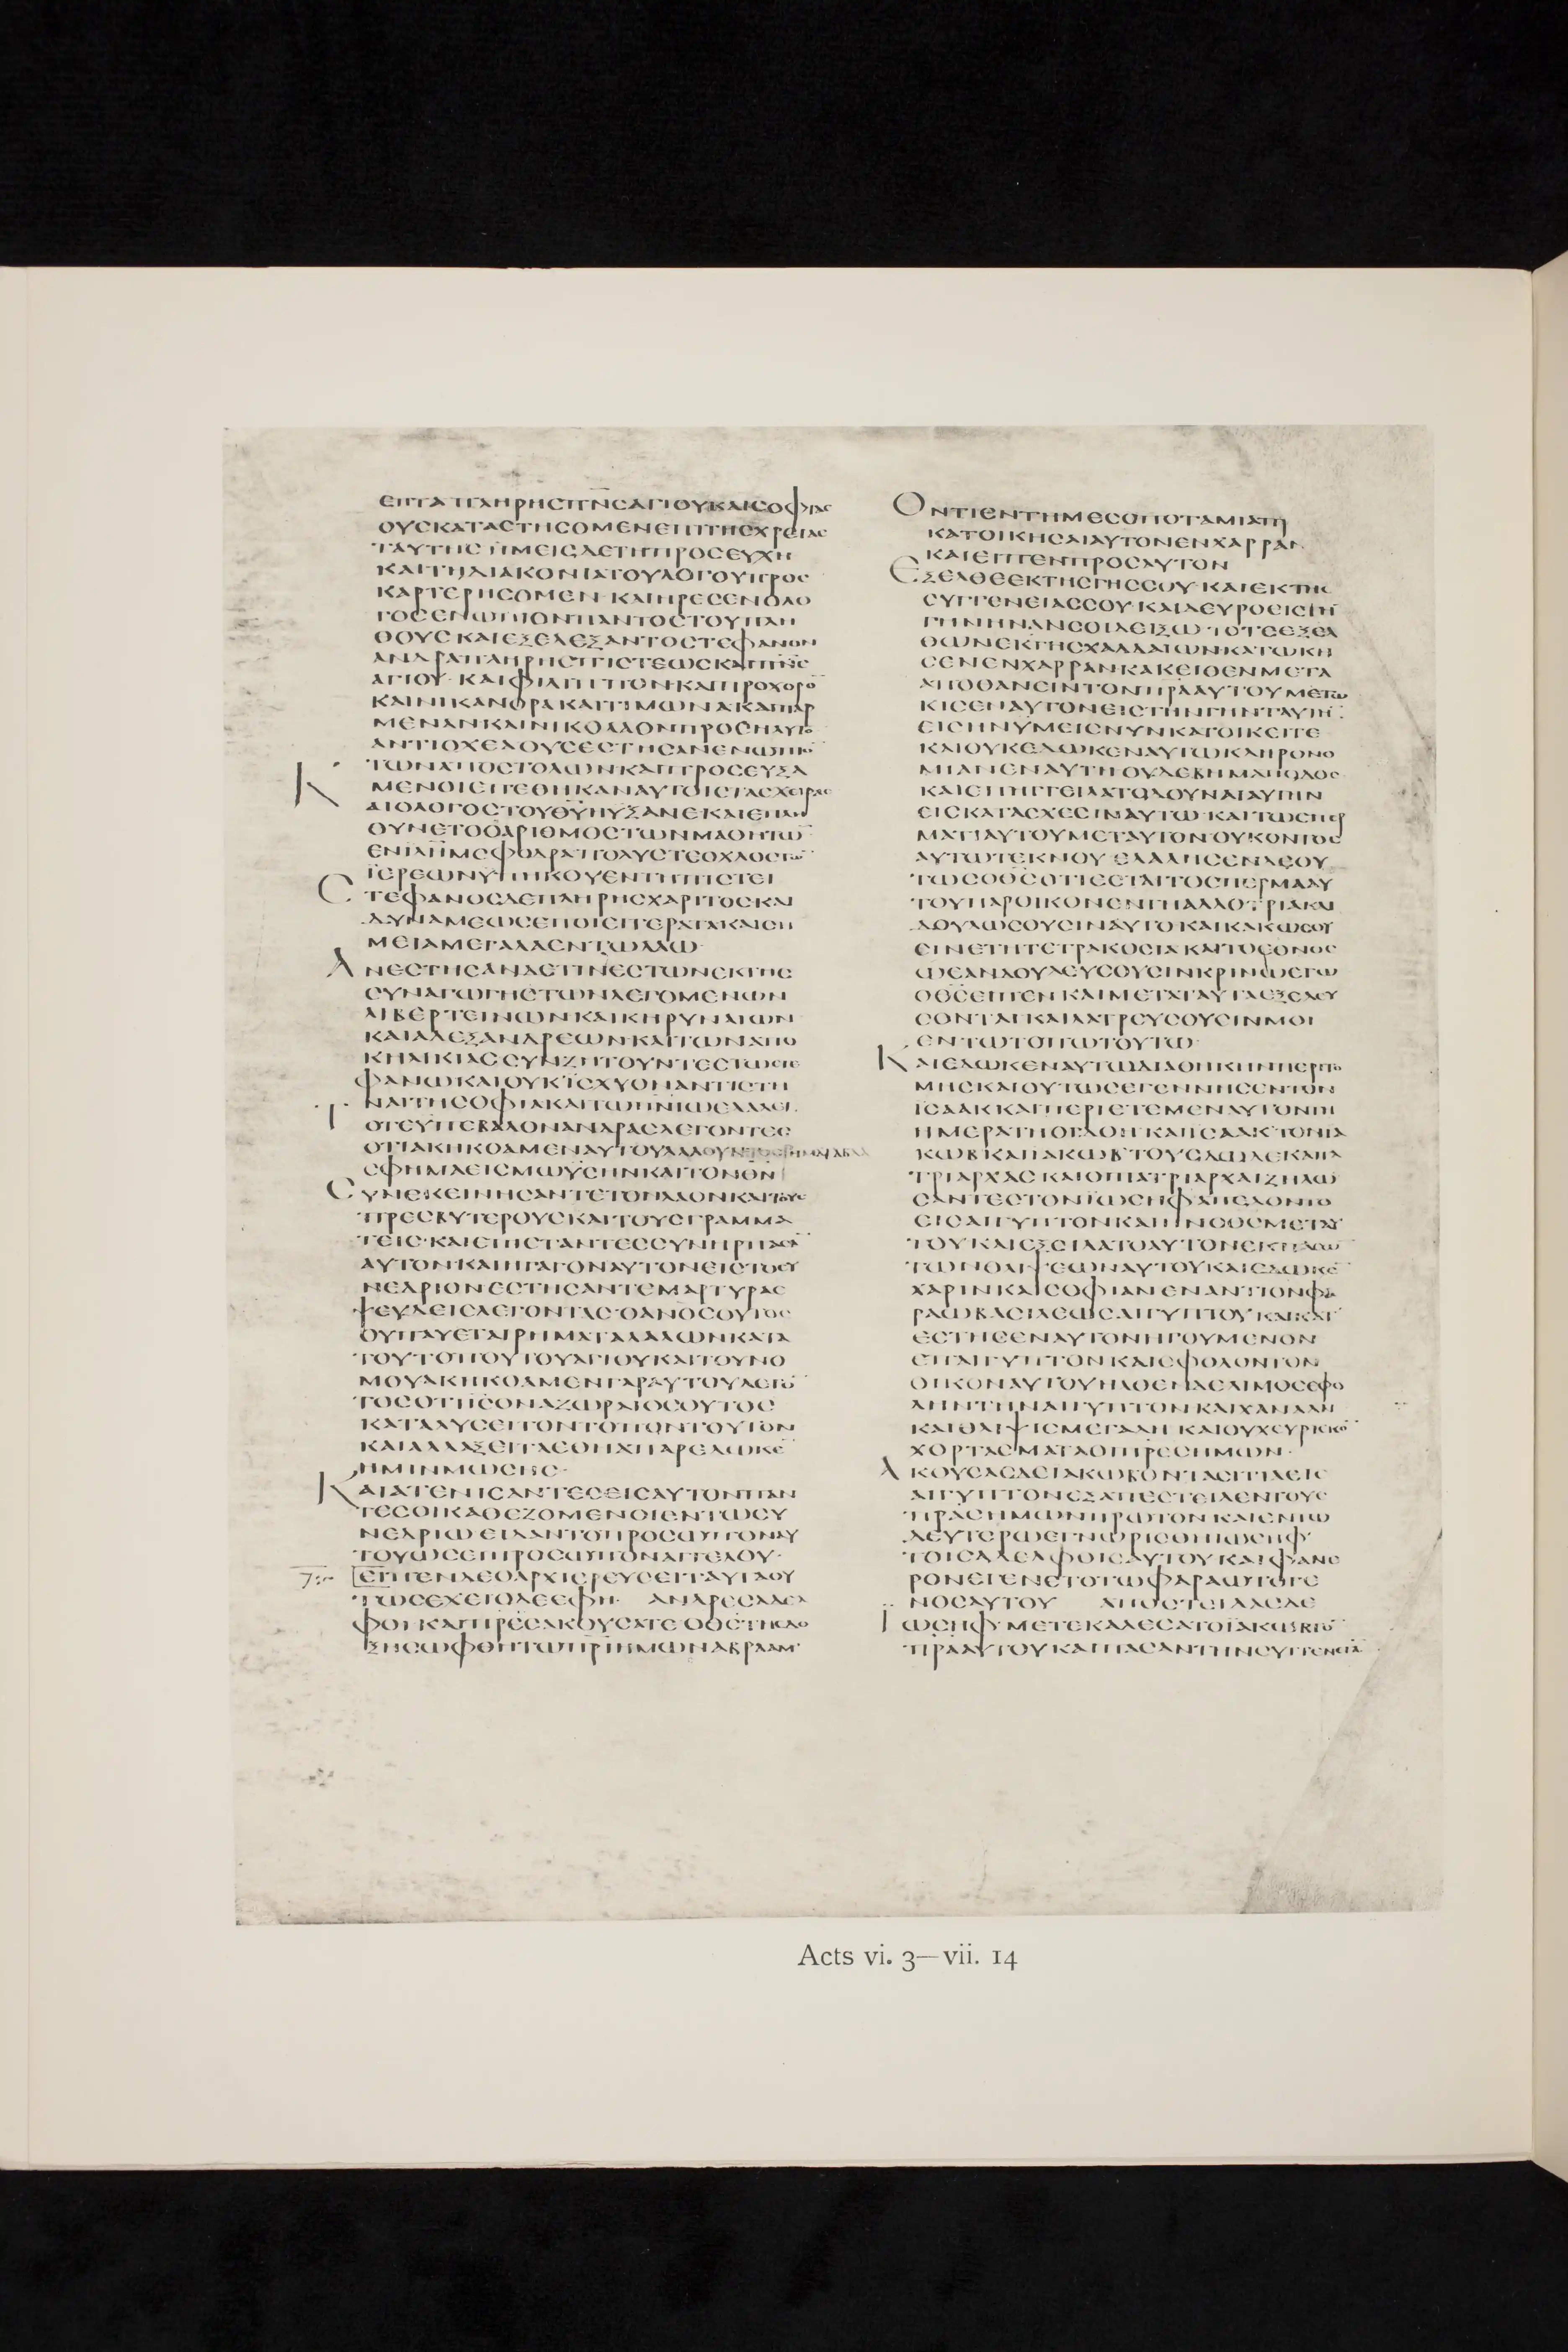 ΕΠΤΑ ΠΛΗΡΗΣ ΠΝΣ ΑΓΙΟΥ ΚΑΙ ΣΟΦΙΑΣ
ΟΥΣ ΚΑΤΑΣΤΗΣΟΜΕΝ ΕΠΙ ΤΗΣ ΧΡΕΙΑΣ
ΤΑΥΤΗΣ ΗΜΕΙΣ ΔΕ ΤΗ ΠΡΟΣΕΥΧΗ
ΚΑΙ ΤΗ ΔΙΑΚΟΝΙΑ ΤΟΥ ΛΟΓΟΥ ΠΡΟΣ
ΚΑΡΤΕΡΗΣΟΜΕΝ· ΚΑΙ ΗΡΕΣΕΝ Ο ΛΟ
ΓΟΣ ΕΝΩΠΙΟΝ ΠΑΝΤΟΣ ΤΟΥ ΠΛΗ
ΘΟΥΣ ΚΑΙ ΕΞΕΛΕΞΑΝΤΟ ΣΤΕΦΑΝΟΝ
ΑΝΔΡΑ ΠΛΗΡΗΣ ΠΙΣΤΕΩΣ ΚΑΙ ΠΝΣ
ΑΓΙΟΥ· ΚΑΙ ΦΙΛΙΠΠΟΝ ΚΑΙ ΠΡΟΧΟΡΟ̅
ΚΑΙ ΝΙΚΑΝΟΡΑ ΚΑΙ ΤΙΜΩΝΑ ΚΑΙ ΠΑΡ
ΜΕΝΑΝ ΚΑΙ ΝΙΚΟΛΑΟΝ ΠΡΟΣΗΛΥΤΟ̅
ΑΝΤΙΟΧΕΑ ΟΥΣ ΕΣΤΗΣΑΝ ΕΝΩΠΙΟ̅
ΤΩΝ ΑΠΟΣΤΟΛΩΝ ΚΑΙ ΠΡΟΣΕΥΞΑ
ΜΕΝΟΙ ΕΠΕΘΗΚΑΝ ΑΥΤΟΙΣ ΤΑΣ ΧΕΙΡΑΣ
ΚΑΙ Ο ΛΟΓΟΣ ΤΟΥ ΘΥ ΗΥΞΑΝΕ ΚΑΙ ΕΠΛΗ
ΘΥΝΕΤΟ Ο ΑΡΙΘΜΟΣ ΤΩΝ ΜΑΘΗΤΩ̅
ΕΝ ΙΛΗΜ ΣΦΟΔΡΑ ΠΟΛΥΣ ΤΕ ΟΧΛΟΣ ΤΩ̅
ΙΕΡΕΩΝ ΥΠΗΚΟΥΕΝ ΤΗ ΠΙΣΤΕΙ
ΣΤΕΦΑΝΟΣ ΔΕ ΠΛΗΡΗΣ ΧΑΡΙΤΟΣ ΚΑΙ
ΔΥΝΑΜΕΩΣ ΕΠΟΙΕΙ ΤΕΡΑΤΑ ΚΑΙ ΣΗ
ΜΕΙΑ ΜΕΓΑΛΑ ΕΝ ΤΩ ΛΑΩ·
ΑΝΕΣΤΗΣΑΝ ΔΕ ΤΙΝΕΣ ΤΩΝ ΕΚ ΤΗΣ
ΣΥΝΑΓΩΓΗΣ ΤΩΝ ΛΕΓΟΜΕΝΩΝ
ΛΙΒΕΡΤΕΙΝΩΝ ΚΑΙ ΚΗΡΥΝΑΙΩΝ
ΚΑΙ ΑΛΕΞΑΝΔΡΕΩΝ ΚΑΙ ΤΩΝ ΑΠΟ
ΚΗΛΙΚΙΑΣ ΣΥΝΖΗΤΟΥΝΤΕΣ ΤΩ ΣΤΕ
ΦΑΝΩ ΚΑΙ ΟΥΚ ΙΣΧΥΟΝ ΑΝΤΙΣΤΗ
ΝΑΙ ΤΗ ΣΟΦΙΑ ΚΑΙ ΤΩ ΠΝΙ Ω ΕΛΑΛΕΙ·
ΤΟΤΕ ΥΠΕΒΑΛΟΝ ΑΝΔΡΑΣ ΛΕΓΟΝΤΕΣ
ΟΤΙ ΑΚΗΚΟΑΜΕΝ ΑΥΤΟΥ ΛΑΛΟΥΝΤΟΣ ΡΗΜΑΤΑ ΒΛΑ
ΣΦΗΜΑ ΕΙΣ ΜΩΥΣΗΝ ΚΑΙ ΤΟΝ ΘΝ
ΣΥΝΕΚΕΙΝΗΣΑΝ ΤΕ ΤΟΝ ΛΑΟΝ ΚΑΙ ΤΟΥΣ
ΠΡΕΣΒΥΤΕΡΟΥΣ ΚΑΙ ΤΟΥΣ ΓΡΑΜΜΑ
ΤΕΙΣ· ΚΑΙ ΕΠΙΣΤΑΝΤΕΣ ΣΥΝΗΡΠΑΣΑ̅
ΑΥΤΟΝ ΚΑΙ ΗΓΑΓΟΝ ΑΥΤΟΝ ΕΙΣ ΤΟ ΣΥ
ΝΕΔΡΙΟΝ ΕΣΤΗΣΑΝ ΤΕ ΜΑΡΤΥΡΑΣ
ΨΕΥΔΕΙΣ ΛΕΓΟΝΤΑΣ· Ο ΑΝΟΣ ΟΥΤΟΣ
ΟΥ ΠΑΥΕΤΑΙ ΡΗΜΑΤΑ ΛΑΛΩΝ ΚΑΤΑ
ΤΟΥ ΤΟΠΟΥ ΤΟΥ ΑΓΙΟΥ ΚΑΙ ΤΟΥ ΝΟ
ΜΟΥ ΑΚΗΚΟΑΜΕΝ ΓΑΡ ΑΥΤΟΥ ΛΕΓΟ̅
ΤΟΣ ΟΤΙ ΙΣ Ο ΝΑΖΩΡΑΙΟΣ ΟΥΤΟΣ
ΚΑΤΑΛΥΣΕΙ ΤΟΝ ΤΟΠΟΝ ΤΟΥΤΟΝ
ΚΑΙ ΑΛΛΑΞΕΙ ΤΑ ΕΘΗ Α ΠΑΡΕΔΩΚΕ̅
ΗΜΙΝ ΜΩΣΗΣ·
ΚΑΙ ΑΤΕΝΙΣΑΝΤΕΣ ΕΙΣ ΑΥΤΟΝ ΠΑΝ
ΤΕΣ ΟΙ ΚΑΘΕΖΟΜΕΝΟΙ ΕΝ ΤΩ ΣΥ
ΝΕΔΡΙΩ ΕΙΔΑΝ ΤΟ ΠΡΟΣΩΠΟΝ ΑΥ
ΤΟΥ ΩΣΕΙ ΠΡΟΣΩΠΟΝ ΑΓΓΕΛΟΥ·
ΕΙΠΕΝ ΔΕ Ο ΑΡΧΙΕΡΕΥΣ ΕΙ ΤΑΥΤΑ ΟΥ
ΤΩΣ ΕΧΕΙ Ο ΔΕ ΕΦΗ· ΑΝΔΡΕΣ ΑΔΕΛ
ΦΟΙ ΚΑΙ ΠΡΕΣ ΑΚΟΥΣΑΤΕ Ο ΘΣ ΤΗΣ ΔΟ
ΞΗΣ ΩΦΘΗ ΤΩ ΠΡΙ ΗΜΩΝ ΑΒΡΑΑΜ·
ΟΝΤΙ ΕΝ ΤΗ ΜΕΣΟΠΟΤΑΜΙΑ ΠΡΙ̅
ΚΑΤΟΙΚΗΣΑΙ ΑΥΤΟΝ ΕΝ ΧΑΡΡΑΝ
ΚΑΙ ΕΙΠΕΝ ΠΡΟΣ ΑΥΤΟΝ
ΕΞΕΛΘΕ ΕΚ ΤΗΣ ΓΗΣ ΣΟΥ· ΚΑΙ ΕΚ ΤΗΣ
ΣΥΓΓΕΝΕΙΑΣ ΣΟΥ· ΚΑΙ ΔΕΥΡΟ ΕΙΣ ΤΗ̅
ΓΗΝ ΗΝ ΑΝ ΣΟΙ ΔΕΙΞΩ· ΤΟΤΕ ΕΞΕΛ
ΘΩΝ ΕΚ ΓΗΣ ΧΑΛΔΑΙΩΝ ΚΑΤΩΚΗ
ΣΕΝ ΕΝ ΧΑΡΡΑΝ ΚΑΚΕΙΘΕΝ ΜΕΤΑ
ΑΠΟΘΑΝΕΙΝ ΤΟΝ ΠΡΑ ΑΥΤΟΥ ΜΕΤΩ
ΚΙΣΕΝ ΑΥΤΟΝ ΕΙΣ ΤΗΝ ΓΗΝ ΤΑΥΤΗ̅
ΕΙΣ ΗΝ ΥΜΕΙΣ ΝΥΝ ΚΑΤΟΙΚΕΙΤΕ
ΚΑΙ ΟΥΚ ΕΔΩΚΕΝ ΑΥΤΩ ΚΛΗΡΟΝΟ
ΜΙΑΝ ΕΝ ΑΥΤΗ ΟΥΔΕ ΒΗΜΑ ΠΟΔΟΣ
ΚΑΙ ΕΠΗΓΓΕΙΛΑΤΟ ΔΟΥΝΑΙ ΑΥΤΗΝ
ΕΙΣ ΚΑΤΑΣΧΕΣΙΝ ΑΥΤΩ· ΚΑΙ ΤΩ ΣΠΕΡ
ΜΑΤΙ ΑΥΤΟΥ ΜΕΤ ΑΥΤΟΝ ΟΥΚ ΟΝΤΟΣ
ΑΥΤΩ ΤΕΚΝΟΥ· ΕΛΑΛΗΣΕΝ ΔΕ ΟΥ
ΤΩΣ Ο ΘΣ ΟΤΙ ΕΣΤΑΙ ΤΟ ΣΠΕΡΜΑ ΑΥ
ΤΟΥ ΠΑΡΟΙΚΟΝ ΕΝ ΓΗ ΑΛΛΟΤΡΙΑ ΚΑΙ
ΔΟΥΛΩΣΟΥΣΙΝ ΑΥΤΟ ΚΑΙ ΚΑΚΩΣΟΥ
ΣΙΝ ΕΤΗ ΤΕΤΡΑΚΟΣΙΑ ΚΑΙ ΤΟ ΕΘΝΟΣ
Ω ΕΑΝ ΔΟΥΛΕΥΣΟΥΣΙΝ ΚΡΙΝΩ ΕΓΩ
Ο ΘΣ ΕΙΠΕΝ· ΚΑΙ ΜΕΤΑ ΤΑΥΤΑ ΕΞΕΛΕΥ
ΣΟΝΤΑΙ ΚΑΙ ΛΑΤΡΕΥΣΟΥΣΙΝ ΜΟΙ
ΕΝ ΤΩ ΤΟΠΩ ΤΟΥΤΩ·
ΚΑΙ ΕΔΩΚΕΝ ΑΥΤΩ ΔΙΑΘΗΚΗΝ ΠΕΡΙΤΟ
ΜΗΣ ΚΑΙ ΟΥΤΩΣ ΕΓΕΝΝΗΣΕΝ ΤΟΝ
ΙΣΑΑΚ ΚΑΙ ΠΕΡΙΕΤΕΜΕΝ ΑΥΤΟΝ ΤΗ
ΗΜΕΡΑ ΤΗ ΟΓΔΟΗ ΚΑΙ ΙΣΑΑΚ ΤΟΝ ΙΑ
ΚΩΒ ΚΑΙ ΙΑΚΩΒ ΤΟΥΣ ΔΩΔΕΚΑ ΠΑ
ΤΡΙΑΡΧΑΣ ΚΑΙ ΟΙ ΠΑΤΡΙΑΡΧΑΙ ΖΗΛΩ
ΣΑΝΤΕΣ ΤΟΝ ΙΩΣΗΦ ΑΠΕΔΟΝΤΟ
ΕΙΣ ΑΙΓΥΠΤΟΝ ΚΑΙ ΗΝ Ο ΘΣ ΜΕΤ ΑΥ
ΤΟΥ ΚΑΙ ΕΞΕΙΛΑΤΟ ΑΥΤΟΝ ΕΚ ΠΑΣΩ̅
ΤΩΝ ΘΛΙΨΕΩΝ ΑΥΤΟΥ ΚΑΙ ΕΔΩΚΕ̅
ΧΑΡΙΝ ΚΑΙ ΣΟΦΙΑΝ ΕΝΑΝΤΙΟΝ ΦΑ
ΡΑΩ ΒΑΣΙΛΕΩΣ ΑΙΓΥΠΤΟΥ ΚΑΙ ΚΑΤ
ΕΣΤΗΣΕΝ ΑΥΤΟΝ ΗΓΟΥΜΕΝΟΝ
ΕΠ ΑΙΓΥΠΤΟΝ ΚΑΙ ΕΦ ΟΛΟΝ ΤΟΝ
ΟΙΚΟΝ ΑΥΤΟΥ ΗΛΘΕΝ ΔΕ ΛΙΜΟΣ ΕΦ Ο
ΛΗΝ ΤΗΝ ΑΙΓΥΠΤΟΝ ΚΑΙ ΧΑΝΑΑΝ
ΚΑΙ ΘΛΙΨΙΣ ΜΕΓΑΛΗ· ΚΑΙ ΟΥΧ ΕΥΡΙΣΚΟ̅
ΧΟΡΤΑΣΜΑΤΑ ΟΙ ΠΡΕΣ ΗΜΩΝ·
ΑΚΟΥΣΑΣ ΔΕ ΙΑΚΩΒ ΟΝΤΑ ΣΙΤΙΑ ΕΙΣ
ΑΙΓΥΠΤΟΝ ΕΞΑΠΕΣΤΕΙΛΕΝ ΤΟΥΣ
ΠΡΑΣ ΗΜΩΝ ΠΡΩΤΟΝ ΚΑΙ ΕΝ ΤΩ
ΔΕΥΤΕΡΩ ΕΓΝΩΡΙΣΘΗ ΙΩΣΗΦ
ΤΟΙΣ ΑΔΕΛΦΟΙΣ ΑΥΤΟΥ ΚΑΙ ΦΑΝΕ
ΡΟΝ ΕΓΕΝΕΤΟ ΤΩ ΦΑΡΑΩ ΤΟ ΓΕ
ΝΟΣ ΑΥΤΟΥ ΑΠΟΣΤΕΙΛΑΣ ΔΕ
ΙΩΣΗΦ· ΜΕΤΕΚΑΛΕΣΑΤΟ ΙΑΚΩΒ ΤΟ̅
ΠΡΑ ΑΥΤΟΥ ΚΑΙ ΠΑΣΑΝ ΤΗΝ ΣΥΓΓΕΝΕΙΑ̅
Acts vi. 3—vii. 14